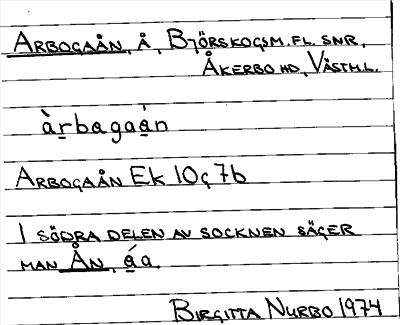 ARBOGAÅN, Å, BJÖRSKOGSM.FL. SNR,
ÅKERBO HD, VÄSTM.L.
àrbagaán
ARBOGAÅN EK 10ç7b
I SÖDRA DELEN AV SOCKNEN SÄGER
MAN ÅN, áa.
BIRGITTA NURBO 1974